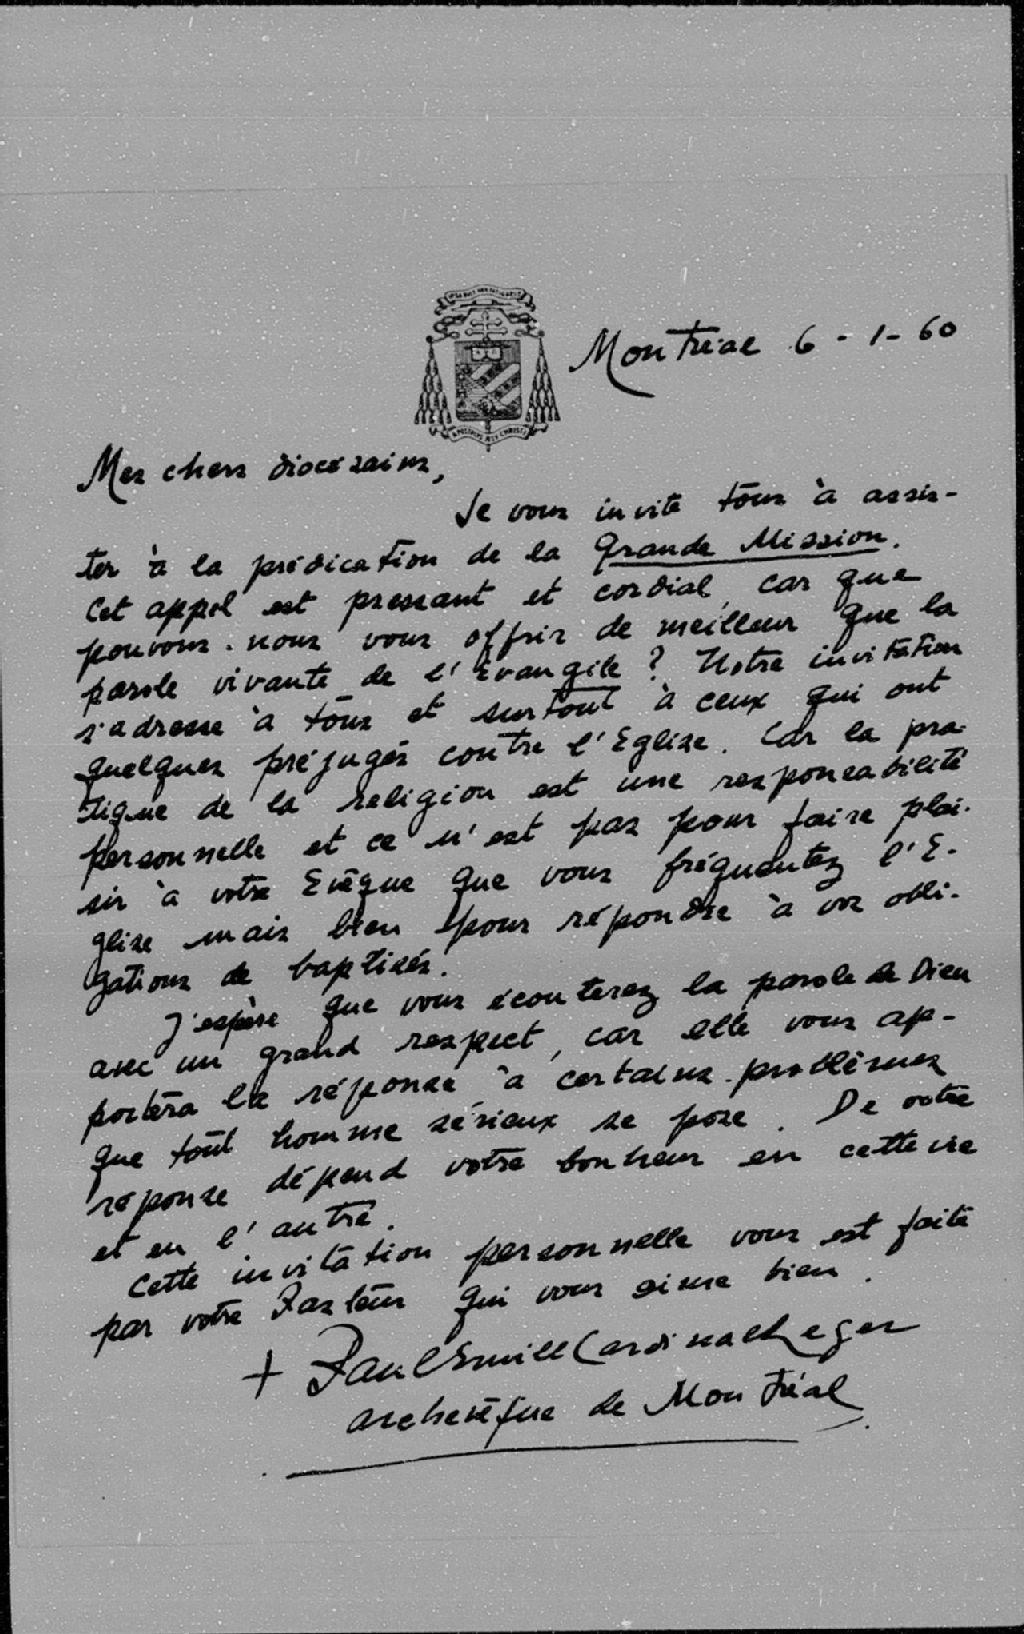 Montréal 6-1-60
Mes chers diocésains,
Je vous invite tous à assis-
ter à la prédication de la Grande Mission.
Cet appel est pressant et cordial, car que
pouvons-nous vous offrir de meilleur que la
parole vivante de l'Évangile ? Notre invitation
s'adresse à tous et surtout à ceux qui ont
quelques préjugés contre l'Eglise. Car la pra-
tique de la religion est une responsabilité
personnelle et ce n'est pas pour faire plai-
sir à votre Evêque que vous fréquentez l'E-
glise mais bien pour répondre à vos obli-
gations de baptisés.
J'espère que vous écouterez la parole de Dieu
avec un grand respect, car elle vous ap-
portera la réponse à certains problèmes
que tout homme sérieux se pose. De votre
réponse dépend votre bonheur en cette vie
et en l'autre.
Cette invitation personnelle vous est faite
par votre Pasteur qui vous aime bien.
+ Paul Emile Cardinal Leger
archevêque de Montréal